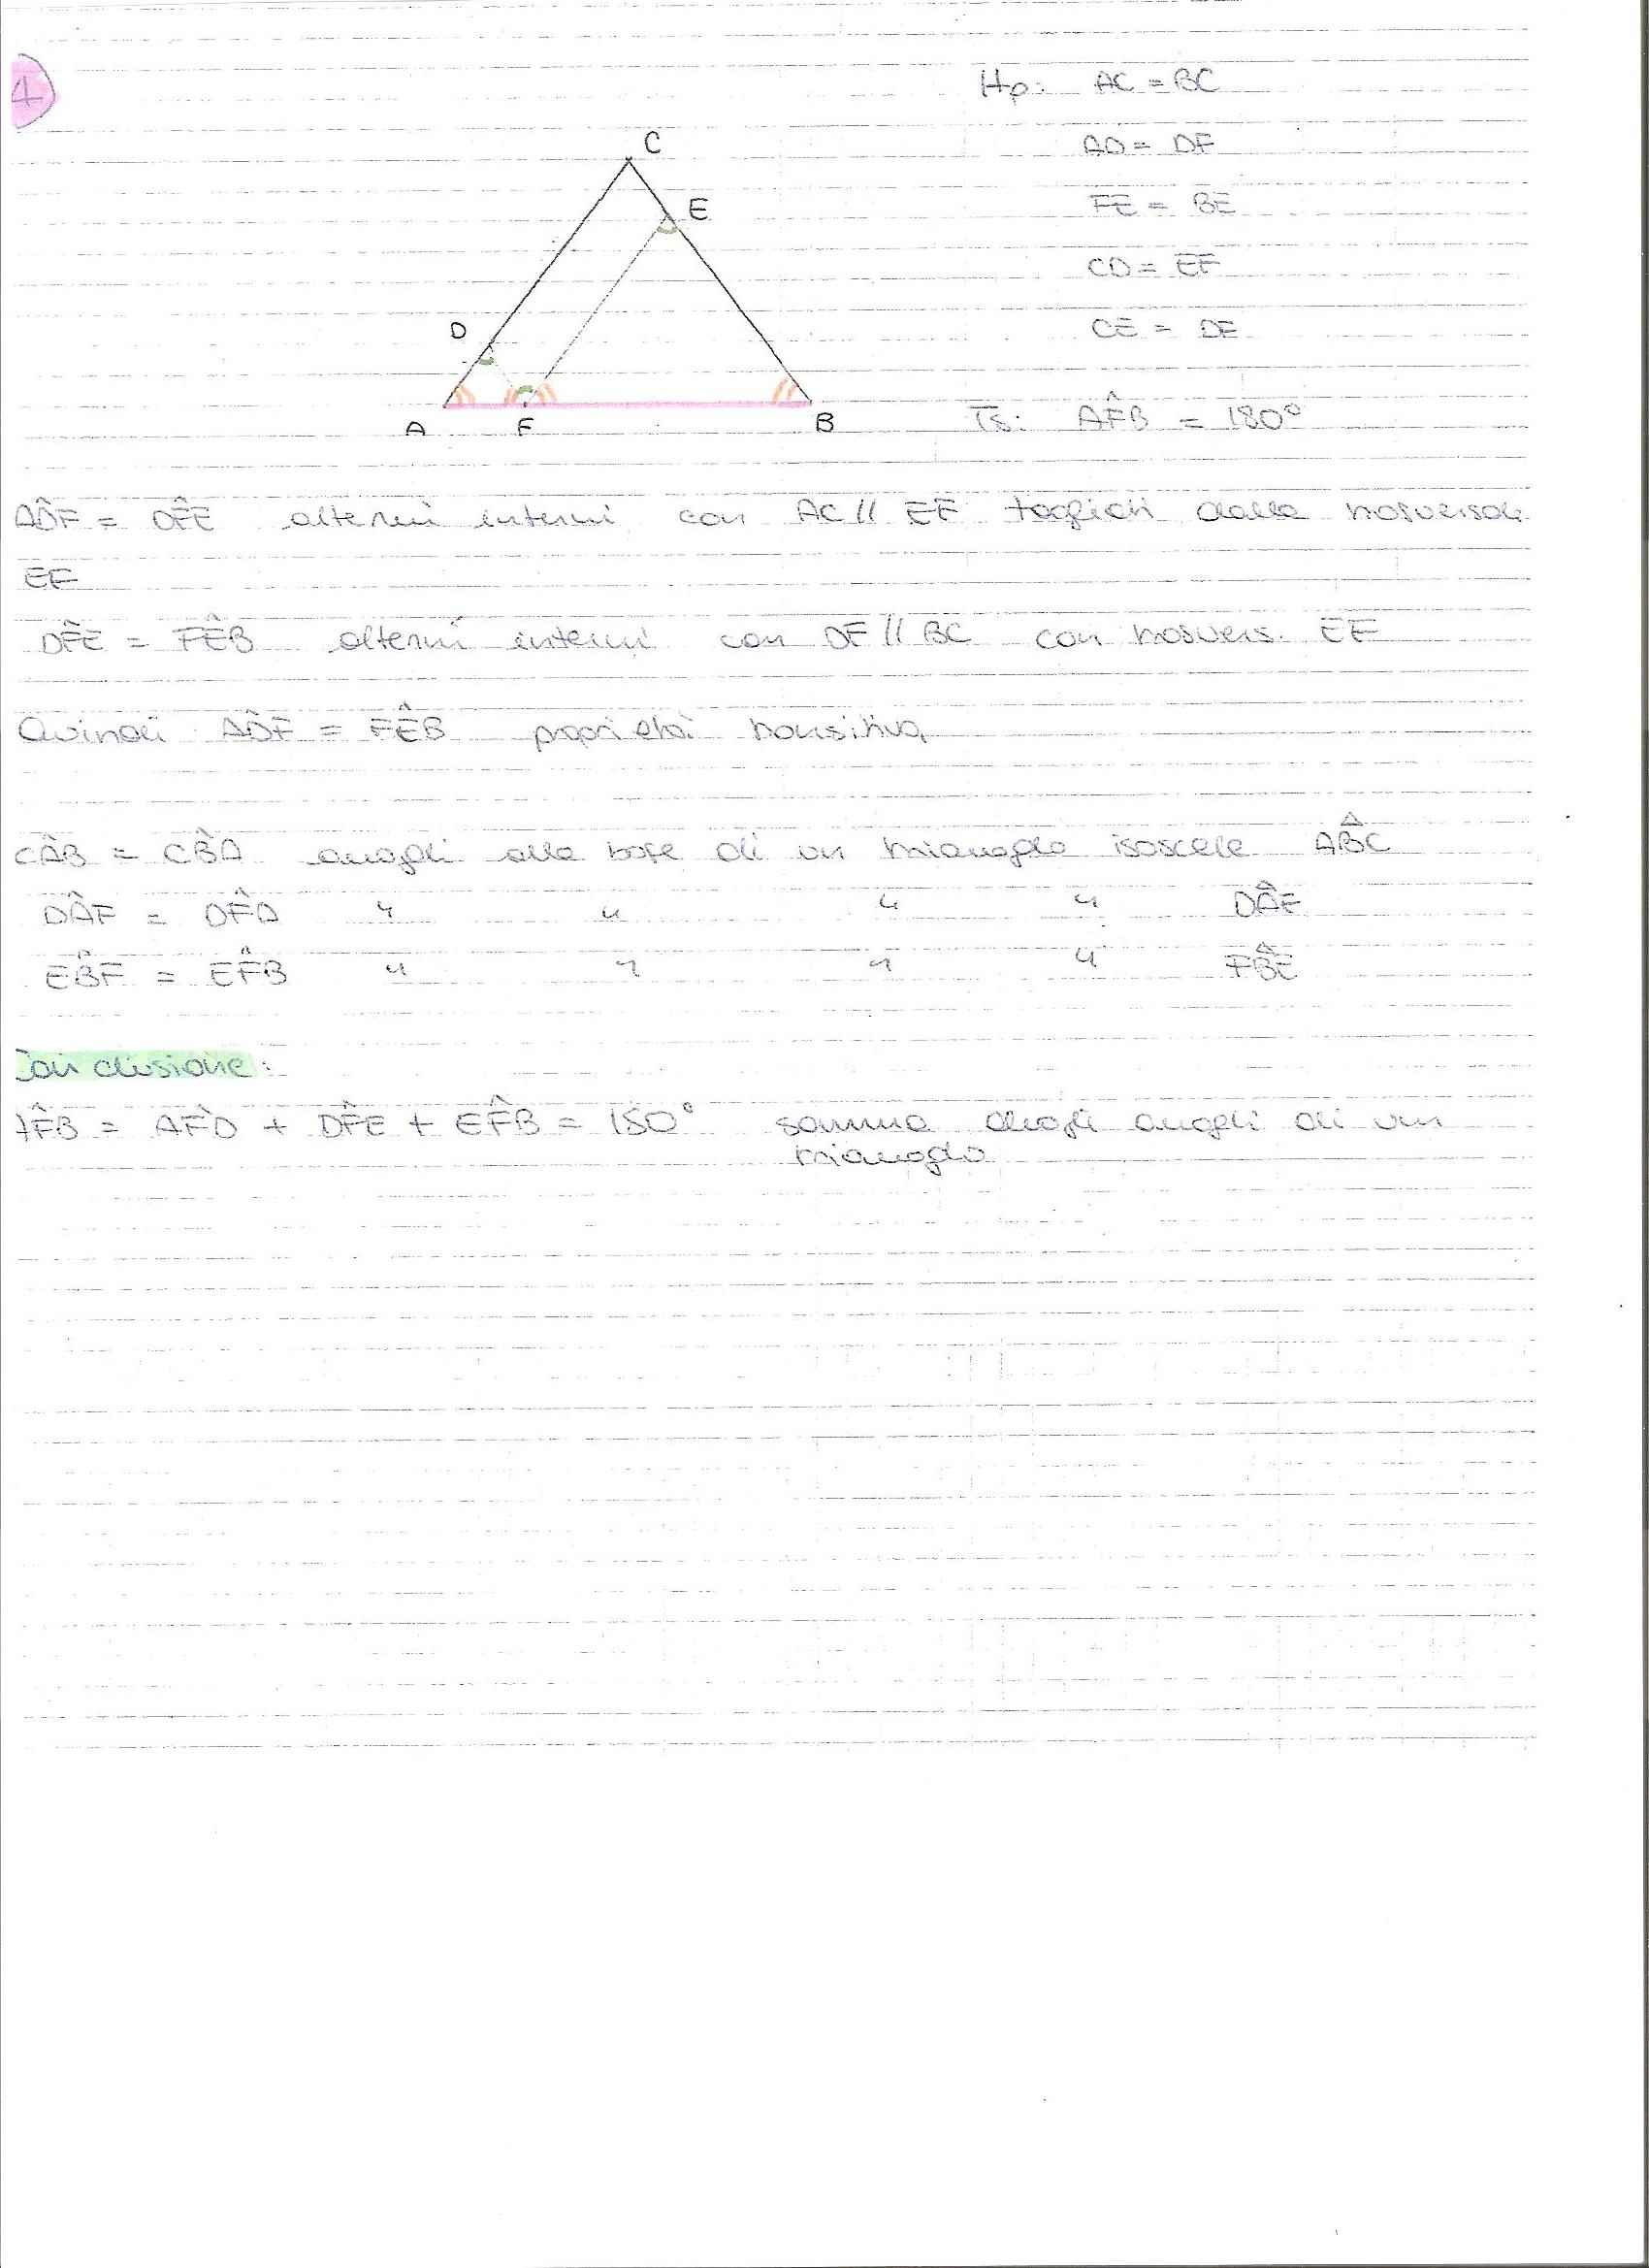 1
Hp: AC = BC
AD = DF
FE = BE
CD = EF
CE = DF
C
E
D
A
F
B
Ts: AF̂B = 180°
AD̂F = DF̂E alterni interni con AC // EF tagliati dalla trasversale
EF
DF̂E = FÊB alterni interni con DF // BC con trasvers. EF
Quindi AD̂F = FÊB proprietà transitiva
CÂB = CB̂A angoli alla base di un triangolo isoscele ABC
DÂF = DF̂A " " " " DAF
EB̂F = EF̂B " " " " FBE
Conclusione:
AF̂B = AF̂D + DF̂E + EF̂B = 180° somma degli angoli di un
triangolo